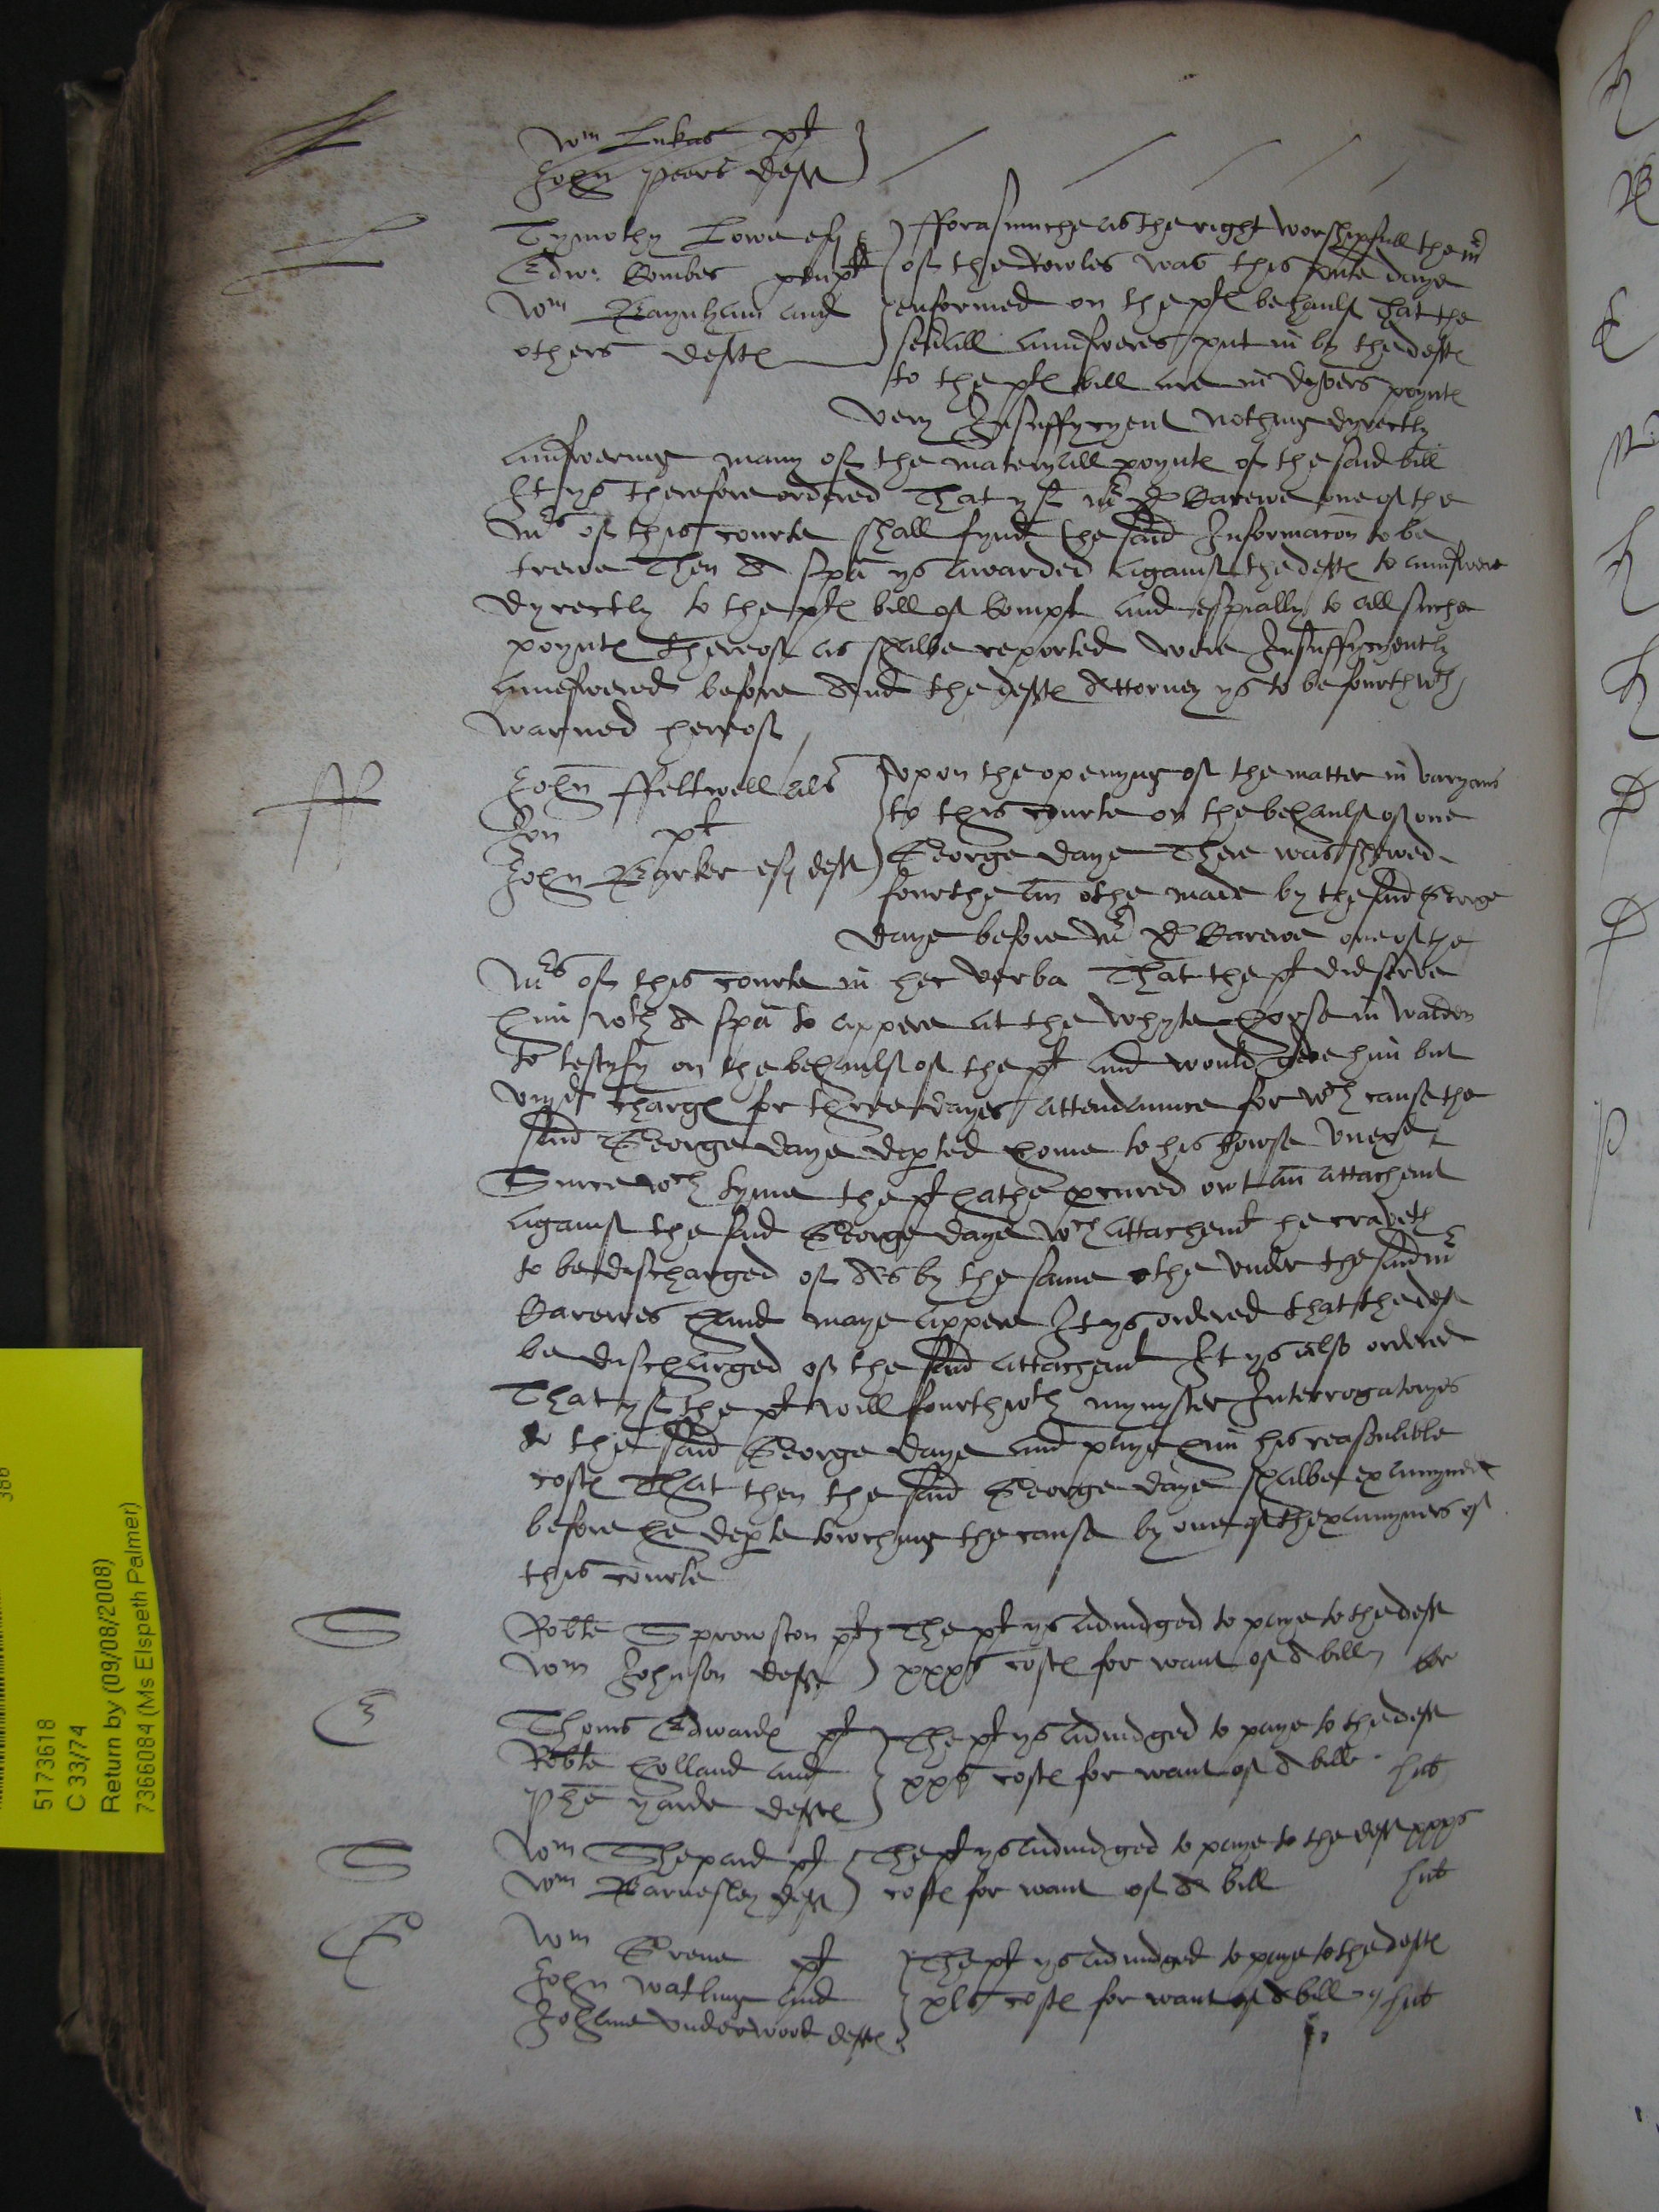 L
Wm Lukas pt
John Peers deft
L
Tymothy Lowe esq
Edw: Combes gen plts
Wm Baynham and
others defts
fforasmuche as the right worshipfull the mr
of the Rowles was this pnte daye
enformed on the pts behaulf That the
seuall aunsweres put in by the defts
to the pts bill are in dyvers poynts
very Insuffycyent nothing dyrectly
aunswering many of the materyall poynts of the said bill
It ys therefore ordered That yf mr D Carewe one of the
mrs of this courte shall fynde the said Informacon to be
trewe Then A spa ys awarded against the defts to aunswere
dyrectly to the pts bill of Compt and espially to all suche
poynts thereof as shalbe reported were Insuffycyently
aunswered before And the defts Attorney ys to be fourthwth
warned hereof
ff
John ffeltwell als
Fen pt
John Barker esq deft
vpon the openyng of the matter in varyans
to this courte on the behaulf of one
George Daye There was shewed
fourthe an othe made by the said George
Daye before mr D Carewe one of the
mrs of this courte in hec verba That the pt did serve
him wth A spa to appere at the whyte horse in walden
to testyfy on the behaulf of the pt and would geve him but
charges for three dayes attendaunce for wch cause the
said George Daye depted home to his howse
Since wch tyme the pt hathe pcured owt an attachemt
against the said George Daye wch attachemt he craveth
to be discharged of As by the same othe vnder the said mr
Carewes hand maye appere It ys ordered that the deft
be discharged of the said attachemt It ys also ordered
That yf the pt will fourthwth mynyster Interrogatoryes
to the said George Daye and paye him his reasonable
costs That then the said George Daye shalbe examyned
before he depte towching the cause by one of thexamyners of
this courte
S
Robte Sprowston pt
Wm Johnson deft
The pt ys adiudged to paye to the deft
xxxs costs for want of A bill
E
Thoms Edwards pt
Robte Holland and
Phe yarde defts
The pt ys adiudged to paye to the deft
xxs costs for want of A bill hit
S
Wm Shepard pt
Wm Barnesley deft
The pt ys adiudged to paye to the deft xxxs
costs for want of A bill hit
G
Wm Grene pt
John Watling and
Johane vnderwood defts
The pt ys adiudged to paye to the defts
xls costs for want of A bill hit
386
5173618
C 33/74
Return by (09/08/2008)
7366084 (Ms Elspeth Palmer)